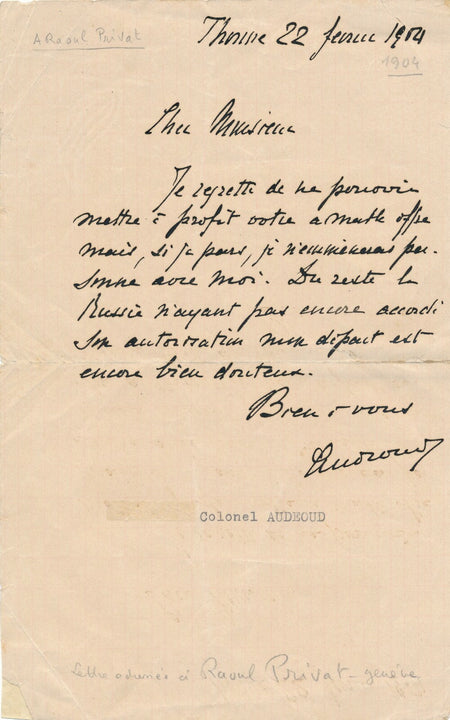 A Raoul Privat
Thoune 22 février 1904
1904
Cher Monsieur
Je regrette de ne pouvoir
mettre à profit votre aimable offre
mais, si je pars, je n'emmènerais per-
sonne avec moi. Du reste la
Russie n'ayant pas encore accordé
son autorisation mon départ est
encore bien douteux.
Bien à vous
Audeoud
Colonel AUDEOUD
Lettre adressée à Raoul Privat - genève